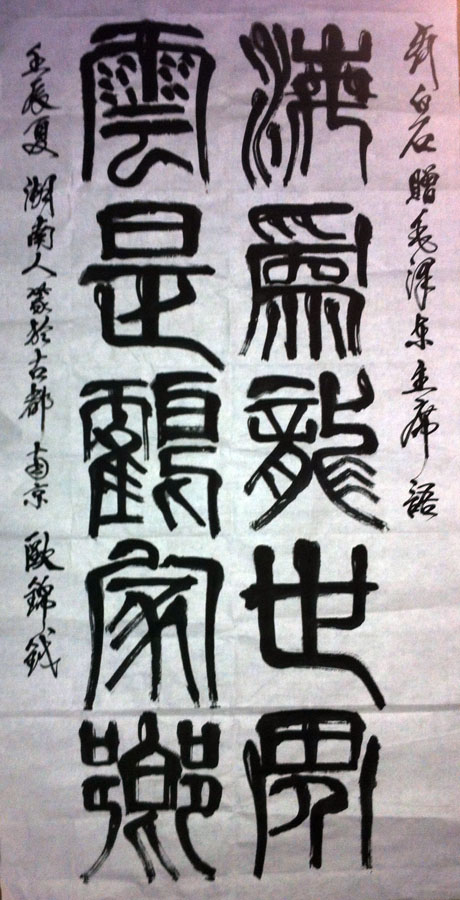 齊白石贈毛澤東主席語
海爲龍世界
雲是鶴家鄉
壬辰夏 湖南人篆於古都南京 歐錦